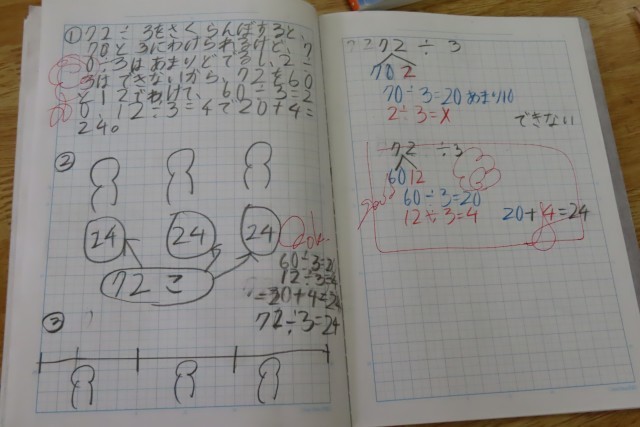 ① 72÷3をさくらんぼすると、
70と3にわけられるけど、7
0÷3はあまりがでるし、2÷
3はできないから、72を60
と12でわけて、60÷3=2
0、12÷3=4で20+4=
24。
②
24 24 24
72こ
60÷3=20
12÷3=4
=20+4=24
72÷3=24
③
72 72÷3
70 2
70÷3=20あまり10
2÷3=×
できない
72÷3
60 12
60÷3=20
12÷3=4
20+4=24